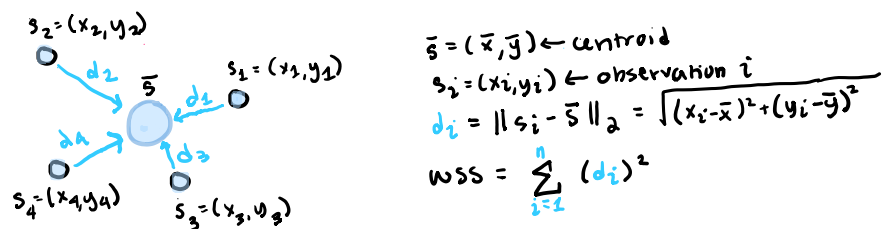 s₂=(x₂,y₂)
d₂
s̄
s₁=(x₁,y₁)
d₁
d₄
d₃
s₄=(x₄,y₄)
s₃=(x₃,y₃)
s̄=(x̄,ȳ)← centroid
sᵢ=(xᵢ,yᵢ) ← observation i
dᵢ = ||sᵢ-s̄||₂ = √((xᵢ-x̄)²+(yᵢ-ȳ)²)
WSS = ∑ᵢ₌₁ⁿ (dᵢ)²